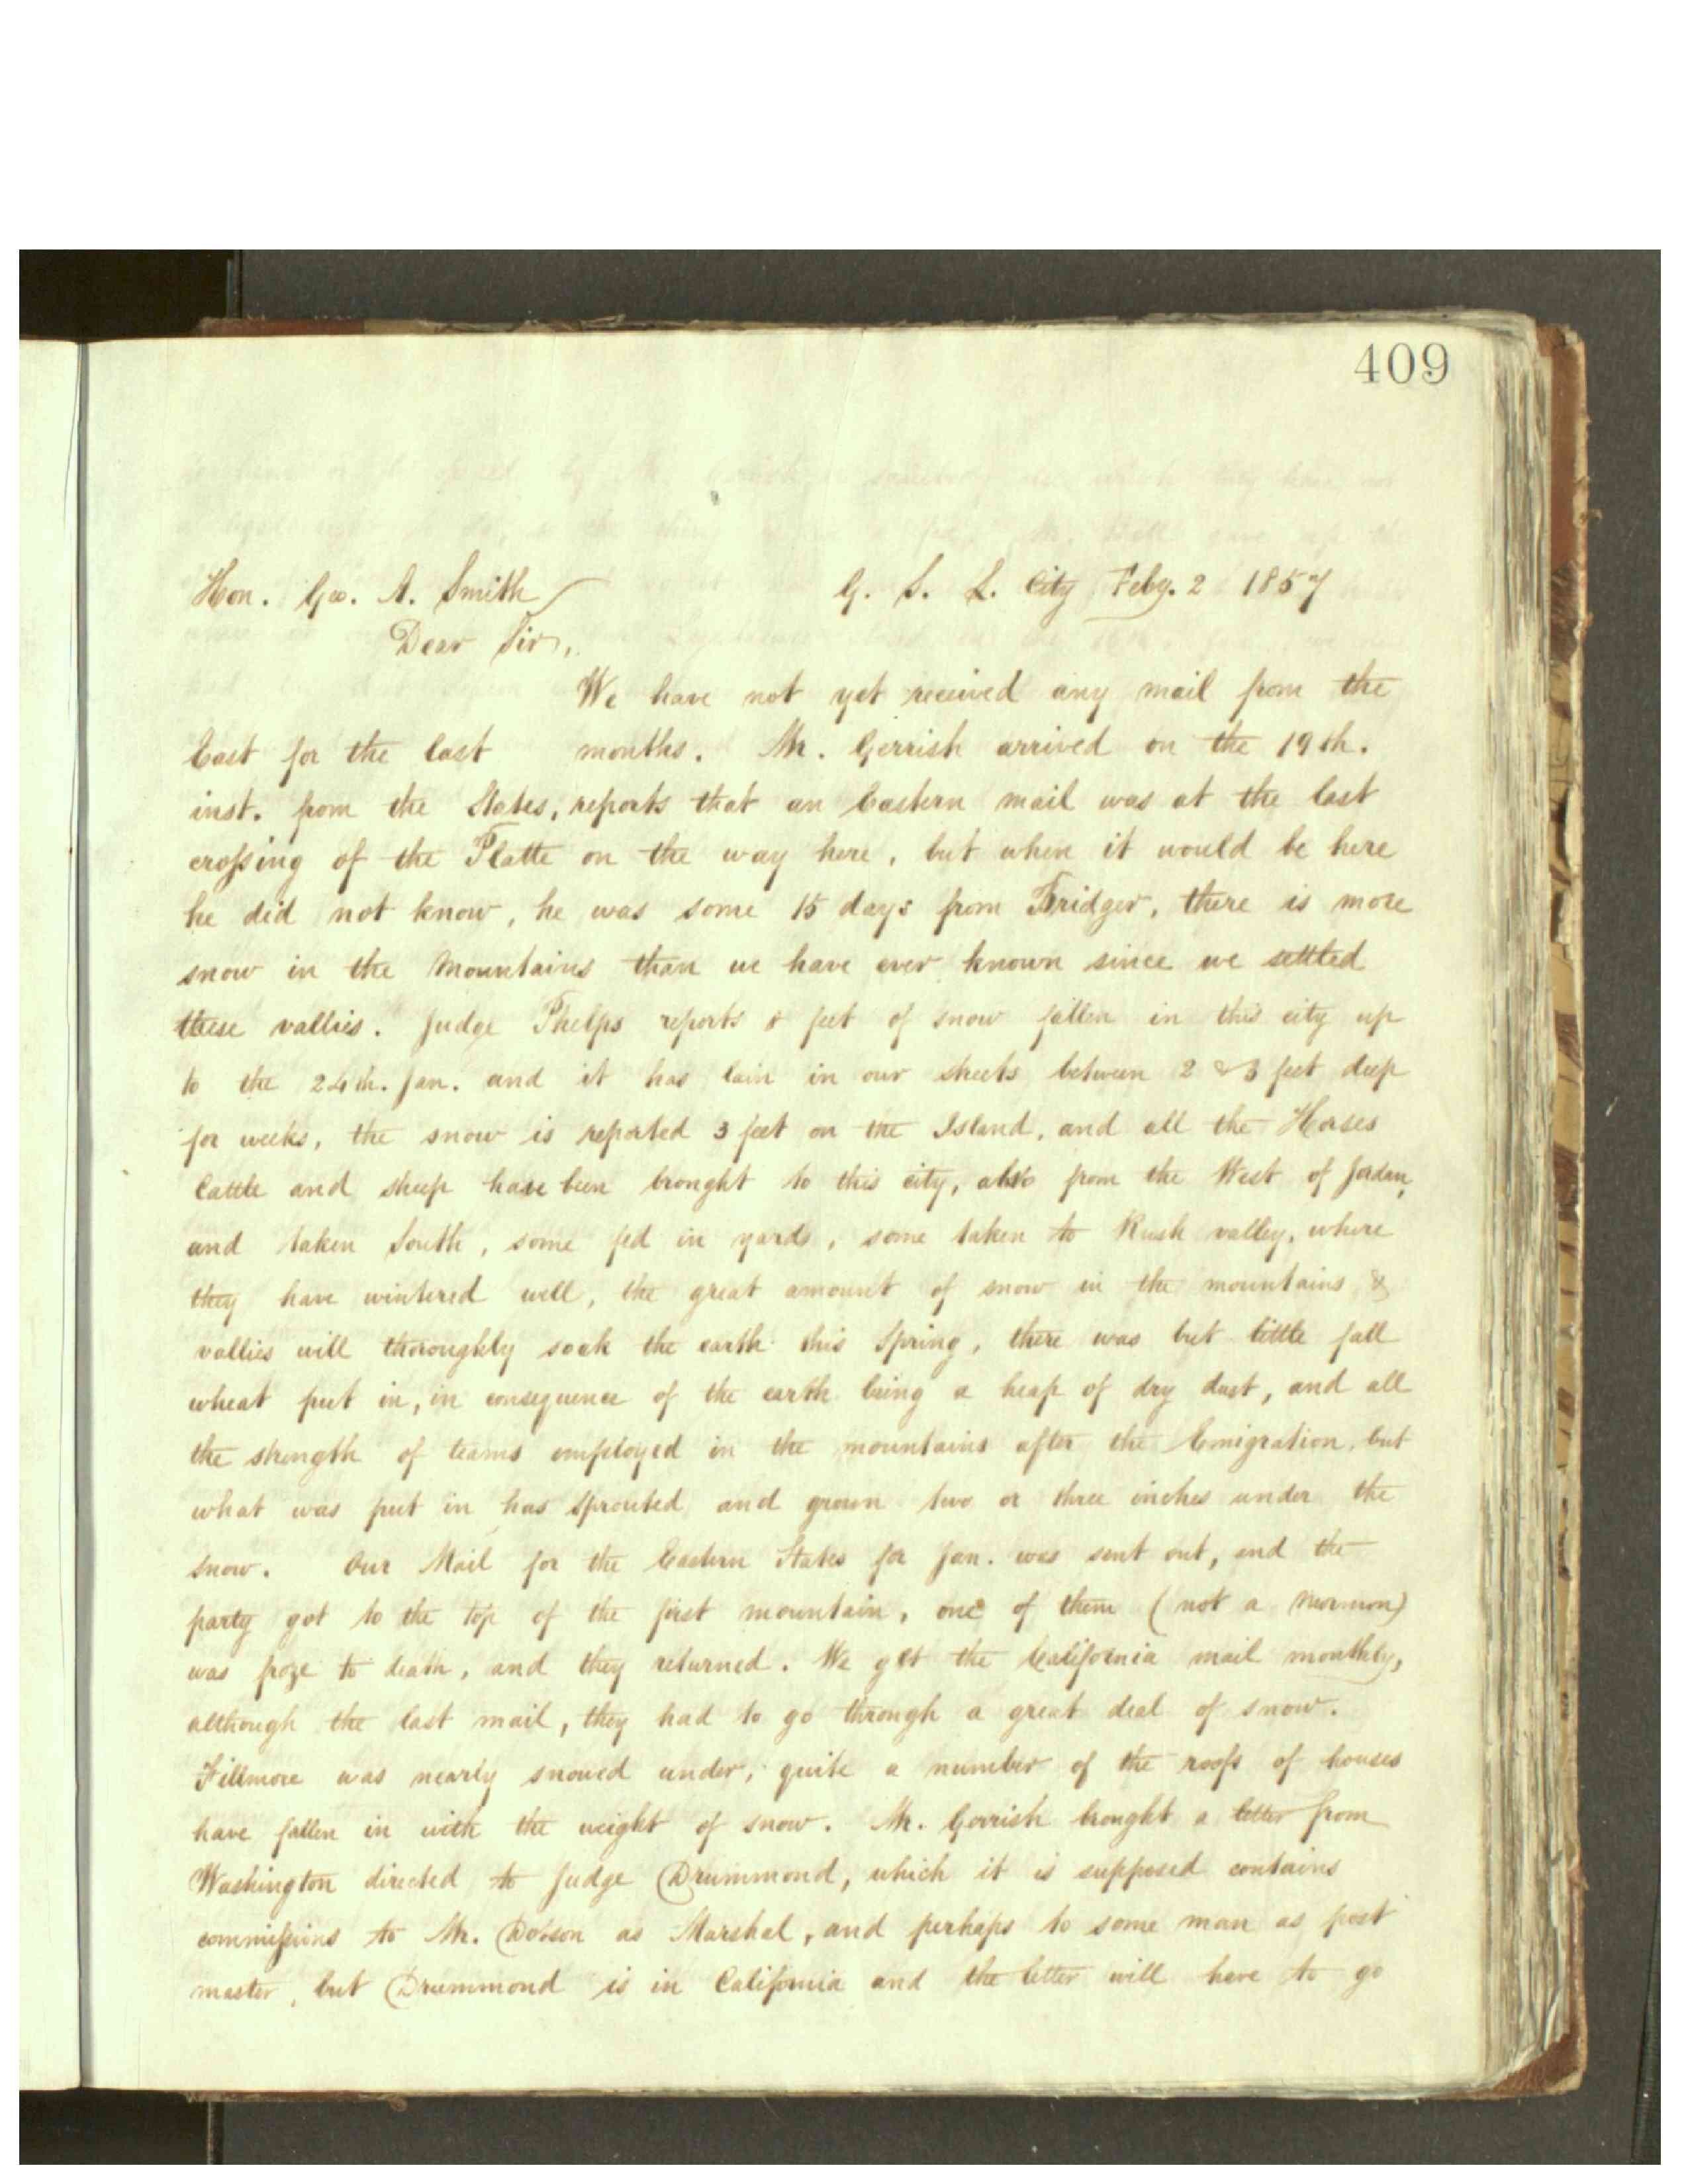 409
Hon. Geo. A. Smith G. S. L. City Feby. 2 1857
Dear Sir,
We have not yet received any mail from the
East for the last months. Mr. Gerrish arrived on the 19th.
inst. from the States, reports that an Eastern mail was at the last
crossing of the Platte on the way here, but when it would be here
he did not know, he was some 15 days from Bridger, there is more
snow in the Mountains than we have ever known since we settled
these vallies. Judge Phelps reports 8 feet of snow fallen in this city up
to the 24th. Jan. and it has lain in our streets between 2 & 3 feet deep
for weeks, the snow is reported 3 feet on the Island, and all the Horses
Cattle and sheep have been brought to this city, also from the West of Jordan,
and taken South, some fed in yards, some taken to Rush valley, where
they have wintered well, the great amount of snow in the mountains &
vallies will thoroughly soak the earth this Spring, there was but little fall
wheat put in, in consequence of the earth being a heap of dry dust, and all
the strength of teams employed in the mountains after the Emigration, but
what was put in has sprouted and grown two or three inches under the
snow. Our Mail for the Eastern States for Jan. was sent out, and the
party got to the top of the first mountain, one of them (not a mormon)
was froze to death, and they returned. We get the California mail monthly,
although the last mail, they had to go through a great deal of snow.
Fillmore was nearly snowed under, quite a number of the roofs of houses
have fallen in with the weight of snow. Mr. Gerrish brought a letter from
Washington directed to Judge Drummond, which it is supposed contains
commissions to Mr. Dotson as Marshal, and perhaps to some man as post
master, but Drummond is in California and the letter will have to go